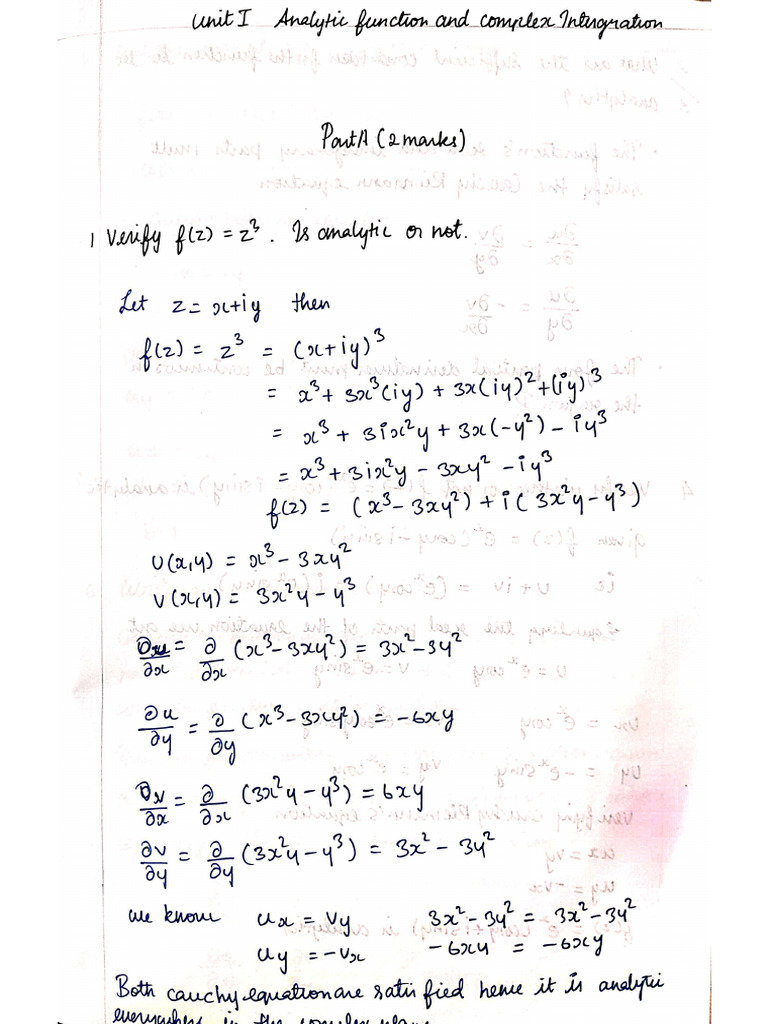 Unit I Analytic function and complex Intergration
Part A (2 marks)
1 Verify f(z) = z³. Is analytic or not.
Let z = x+iy then
f(z) = z³ = (x+iy)³
= x³ + 3x³(iy) + 3x(iy)² + (iy)³
= x³ + 3ix²y + 3x(-y²) - iy³
= x³ + 3ix²y - 3xy² - iy³
f(z) = (x³ - 3xy²) + i(3x²y - y³)
U(x,y) = x³ - 3xy²
V(x,y) = 3x²y - y³
∂u/∂x = ∂/∂x (x³ - 3xy²) = 3x² - 3y²
∂u/∂y = ∂/∂y (x³ - 3xy²) = -6xy
∂v/∂x = ∂/∂x (3x²y - y³) = 6xy
∂v/∂y = ∂/∂y (3x²y - y³) = 3x² - 3y²
we know ux = vy 3x² - 3y² = 3x² - 3y²
uy = -vx -6xy = -6xy
Both cauchy equation are satisfied hence it is analytic
everywhere in the complex plane